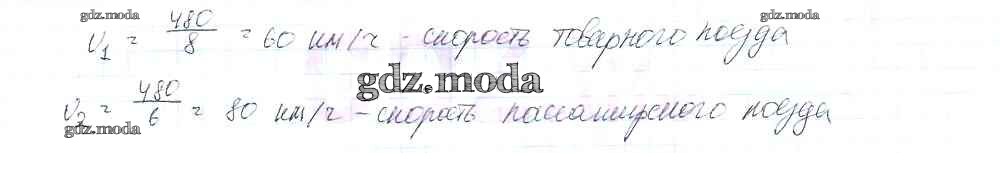 gdz.moda
gdz.moda
v₁ = 480/8 = 60 км/ч - скорость товарного поезда
gdz.moda
v₂ = 480/6 = 80 км/ч - скорость пассажирского поезда
gdz.moda
gdz.moda